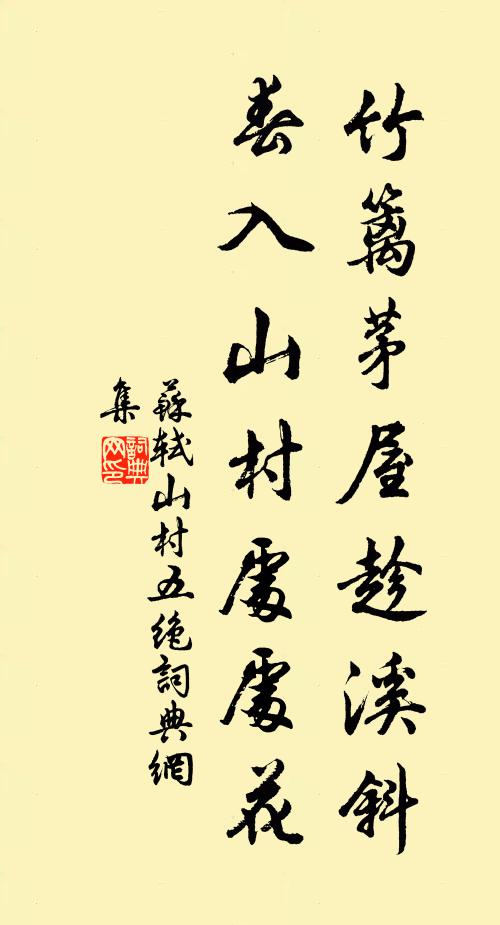 竹籬茅屋趁溪斜
春入山村處處花
蘇軾山村五絕詞典網
集
詞典網印